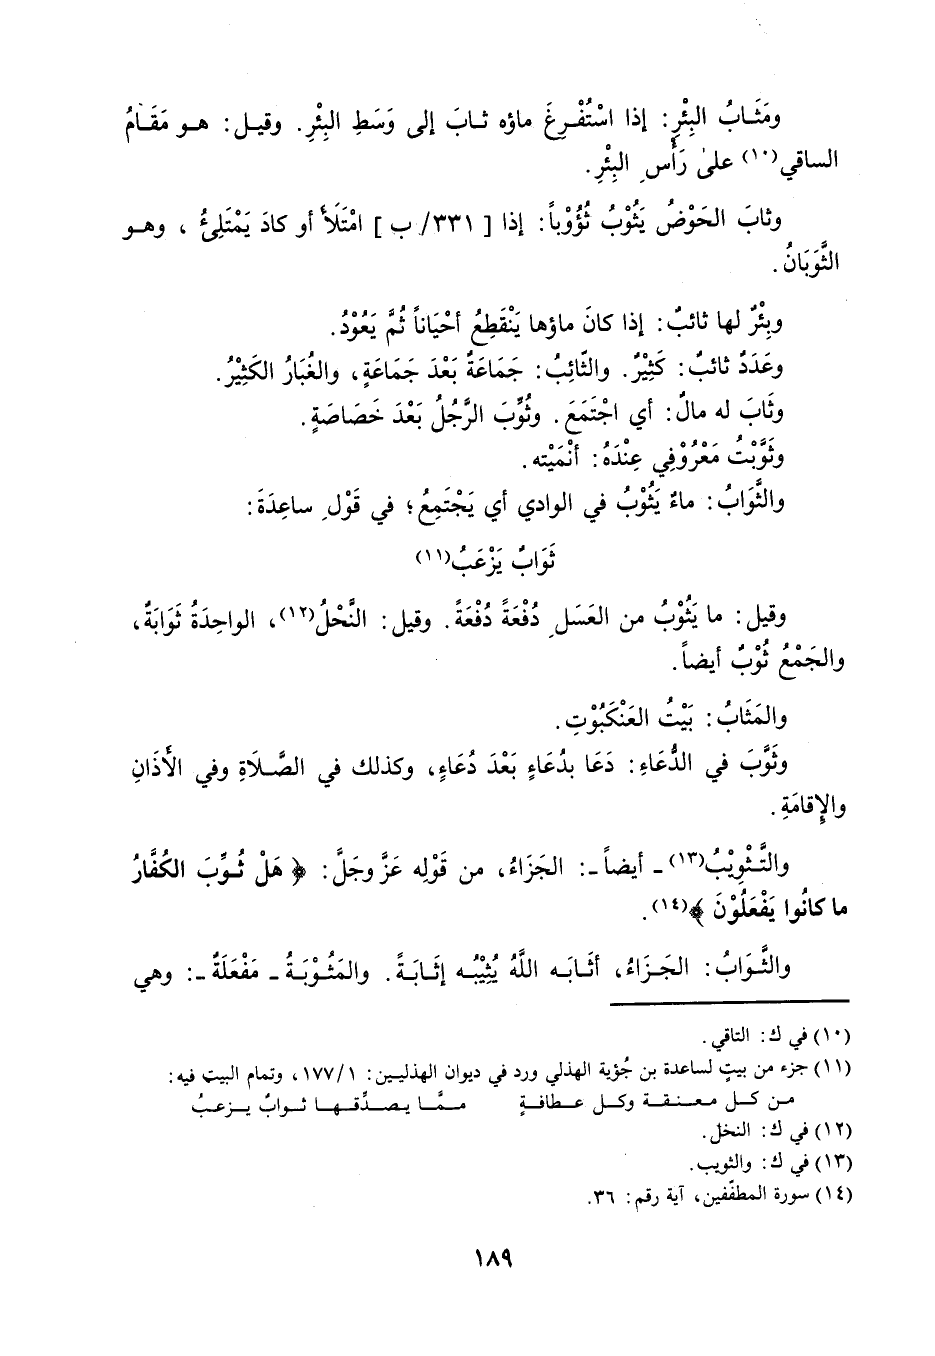 ومَثَابُ البِئْرِ: إذا اسْتُفْرِغَ ماؤه ثابَ إلى وَسَطِ البِئْرِ. وقيل: هو مَقَامُ
الساقي(١٠) على رَأْسِ البِئْرِ.
وثابَ الحَوْضُ يَثُوْبُ ثُؤُوْباً: إذا [ ٣٣١/ ب ] امْتَلَأَ أو كادَ يَمْتَلِئُ ، وهو
الثَّوَبَانُ.
وبِئْرٌ لها ثائبٌ: إذا كانَ ماؤها يَنْقَطِعُ أحْيَاناً ثُمَّ يَعُوْدُ.
وعَدَدٌ ثائبٌ: كَثِيْرٌ. والثّائِبُ: جَمَاعَةٌ بَعْدَ جَمَاعَةٍ، والغُبَارُ الكَثِيْرُ.
وثَابَ له مالٌ: أي اجْتَمَعَ. وثُوِّبَ الرَّجُلُ بَعْدَ خَصَاصَةٍ.
وثَوَّبْتُ مَعْرُوْفِي عِنْدَهُ: أنْمَيْته.
والثَّوَابُ: ماءٌ يَثُوْبُ في الوادي أي يَجْتَمِعُ؛ في قَوْلِ ساعِدَةَ:
ثَوَابٌ يَزْعَبُ(١١)
وقيل: ما يَثُوْبُ من العَسَلِ دُفْعَةً دُفْعَةً. وقيل: النَّحْلُ(١٢)، الواحِدَةُ ثَوَابَةٌ،
والجَمْعُ ثُوْبٌ أيضاً.
والمَثَابُ: بَيْتُ العَنْكَبُوْتِ.
وثَوَّبَ في الدُّعَاءِ: دَعَا بدُعَاءٍ بَعْدَ دُعَاءٍ، وكذلك في الصَّلَاةِ وفي الأَذَانِ
والإِقامَةِ.
والتَّثْوِيْبُ(١٣) ـ أيضاً ـ: الجَزَاءُ، من قَوْلِه عَزَّ وجَلَّ: ﴿ هَلْ ثُوِّبَ الكُفَّارُ
ما كانُوا يَفْعَلُوْنَ ﴾(١٤).
والثَّوَابُ: الجَزَاءُ، أثَابَه اللَّهُ يُثِيْبُه إثَابَةً. والمَثُوْبَةُ ـ مَفْعَلَةٌ ـ: وهي
(١٠) في ك: التاقي.
(١١) جزء من بيتٍ لساعدة بن جُؤية الهذلي ورد في ديوان الهذليين: ١٧٧/١، وتمام البيت فيه:
من كل معنقة وكل عطافةٍ ممَّا يصدِّقها ثوابٌ يزعبُ
(١٢) في ك: النخل.
(١٣) في ك: والثويب.
(١٤) سورة المطفّفين، آية رقم: ٣٦.
١٨٩